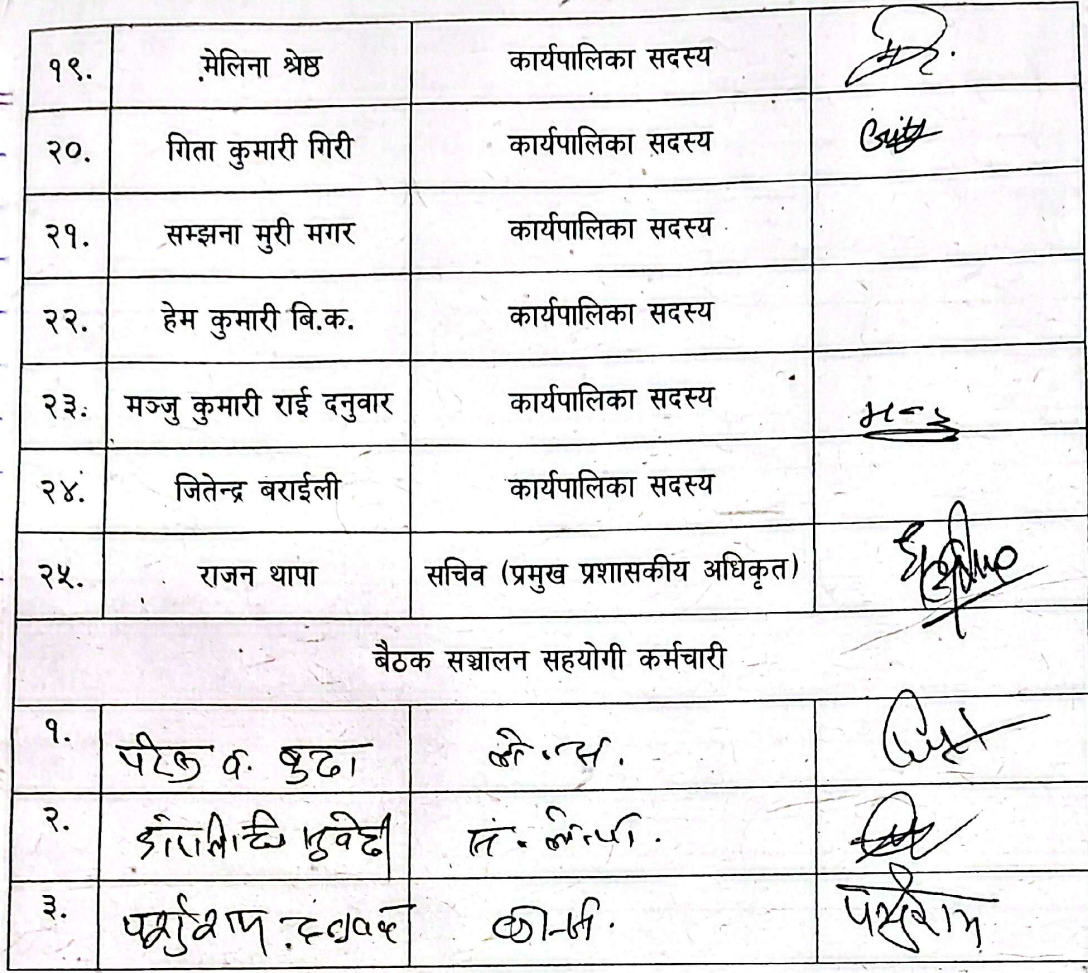 १९. मेलिना श्रेष्ठ कार्यपालिका सदस्य
२०. गिता कुमारी गिरी कार्यपालिका सदस्य
२१. सम्झना मुरी मगर कार्यपालिका सदस्य
२२. हेम कुमारी बि.क. कार्यपालिका सदस्य
२३. मञ्जु कुमारी राई दनुवार कार्यपालिका सदस्य
२४. जितेन्द्र बराईली कार्यपालिका सदस्य
२५. राजन थापा सचिव (प्रमुख प्रशासकीय अधिकृत)
बैठक सञ्चालन सहयोगी कर्मचारी
१. ब. बुढा
२.
३. पर्शुराम पर्शुराम